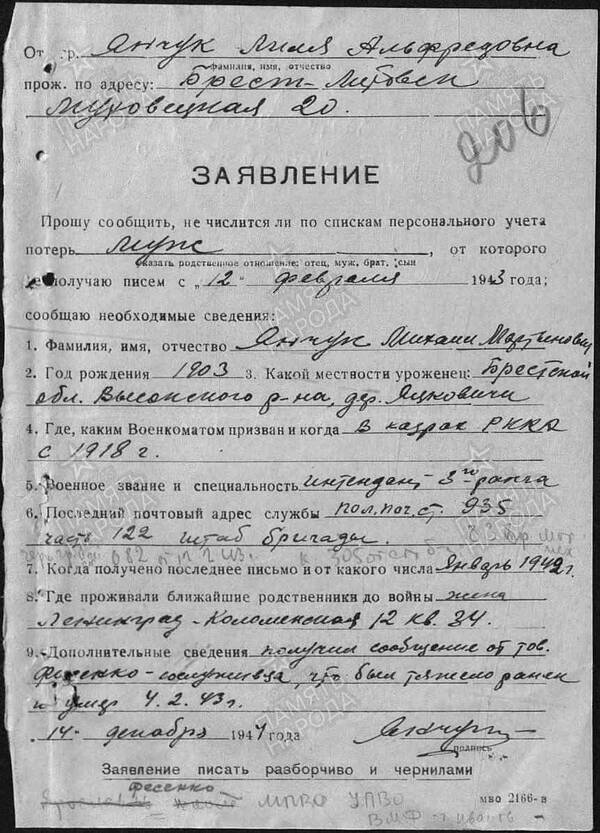 От гр. Янчук Лиля Альфредовна
Фамилия, имя, отчество
прож. по адресу: Брест-Литовск
Муховецкая 20.
206
ЗАЯВЛЕНИЕ
Прошу сообщить, не числится ли по спискам персонального учета
потерь муж, от которого
Указать родственное отношение: отец, муж, брат, сын
не получаю писем с „12" февраля 1943 года;
сообщаю необходимые сведения:
1. Фамилия, имя, отчество Янчук Михаил Мартынович
2. Год рождения 1903 3. Какой местности уроженец: Брестской
обл. Высоковского р-на, дер. Яцковичи
4. Где, каким Военкоматом призван и когда В кадрах РККА
с 1918 г.
5. Военное звание и специальность интендант 3го ранга
6. Последний почтовый адрес службы пол. поч. ст. 935
часть 122 штаб бригады.
7. Когда получено последнее письмо и от какого числа Январь 1942 г.
8. Где проживали ближайшие родственники до войны жена
Ленинград-Коломенская 12 кв. 34.
9. Дополнительные сведения получил сообщение от тов.
Фесенко-сослуживца, что был тяжело ранен
и умер 4.2.43 г.
14 декабря 1944 года
подпись
Заявление писать разборчиво и чернилами
Фесенко
МПВО УПВО
мво 2166-в
ВМФ
ПАМЯТЬ НАРОДА